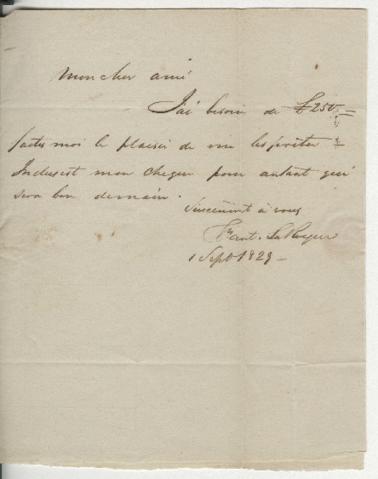 Mon cher ami
J'ai besoin de £250
faites moi le plaisir de me les prêter
Inclus est mon cheque pour autant qui
sera bon demain.
Sincèrement à vous
1 Sept 1829